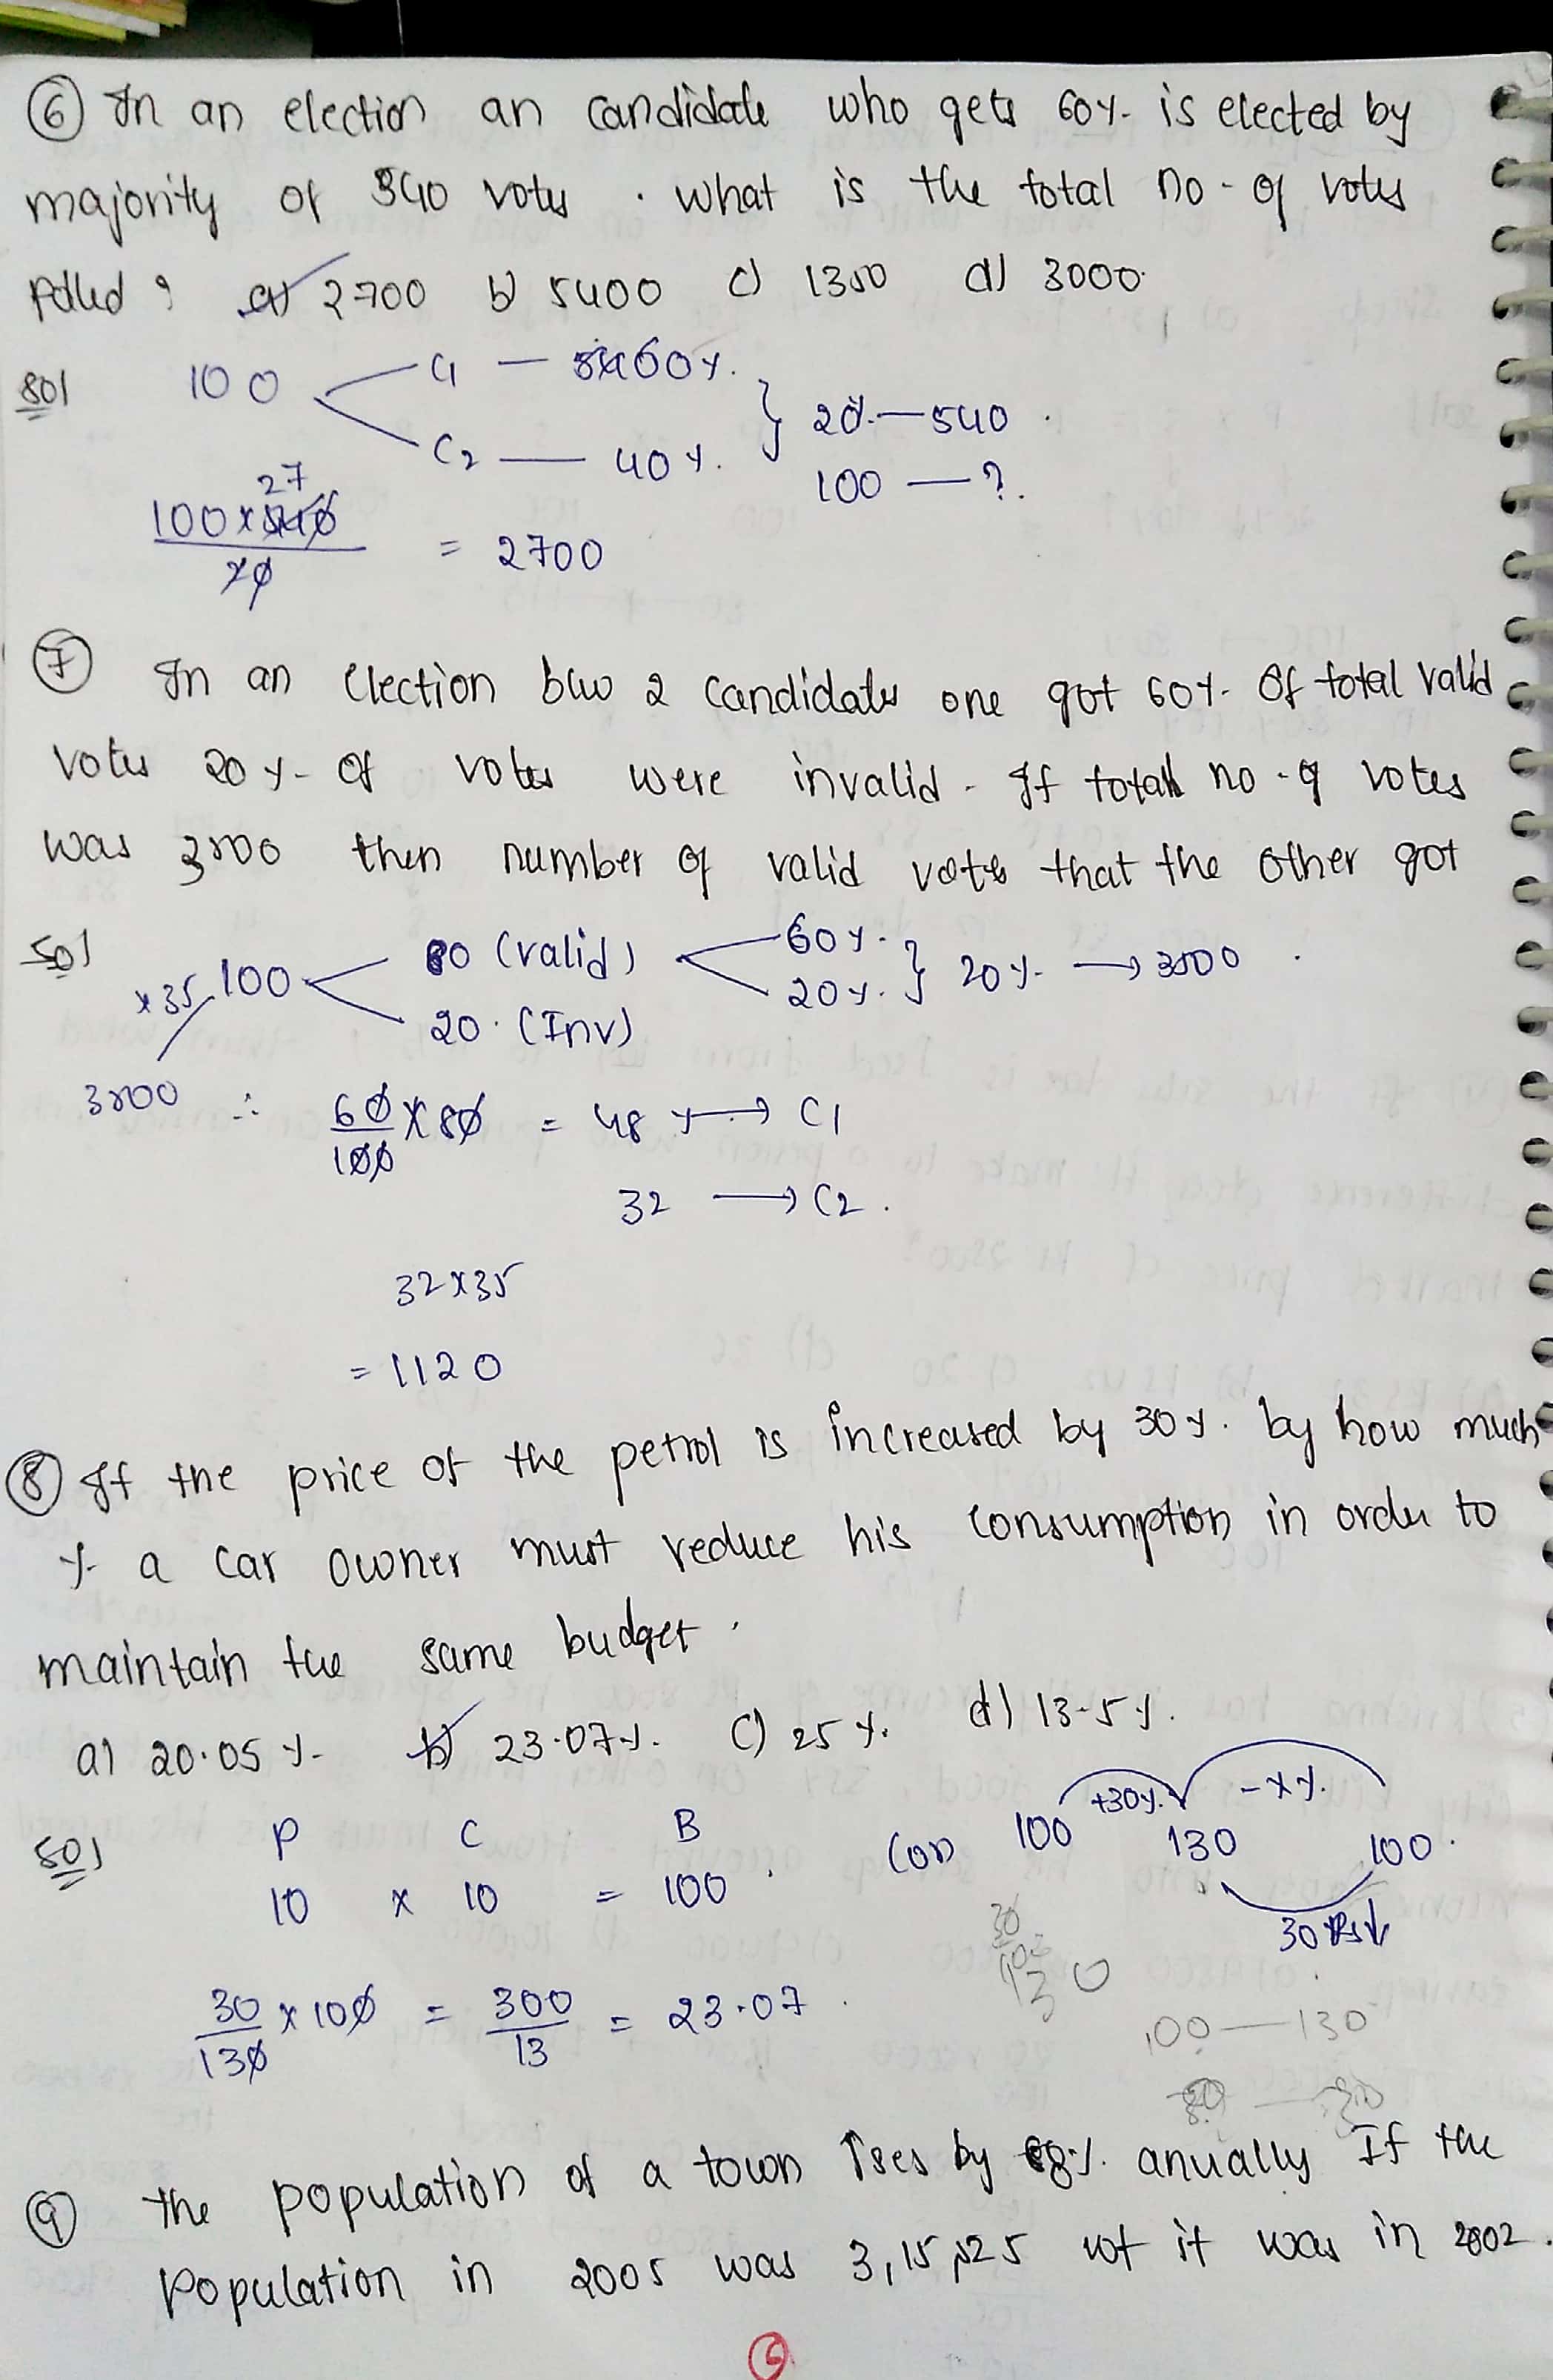 ⑥ In an election an candidate who gets 60%. is elected by
majority of 540 votes. What is the total no. of votes
Polled ? a) 2700 b) 5400 c) 1350 d) 3000.
Sol 100 C1 — 60%. } 20%. — 540.
C2 — 40%. 100 — ?.
27
100 × 540
20
= 2700
⑦ In an Election b/w 2 candidates one got 60%. Of total valid
votes 20%. Of votes were invalid. If total no. of votes
was 3500 then number of valid vote that the other got
Sol ×35 100 80 (valid) 60%. } 20%. → 3500.
20%.
20. (Inv)
3500 ∴ 60/100 × 80 = 48%. → C1
32 → C2.
32×35
= 1120
⑧ If the price of the petrol is increased by 30%. by how much
%. a car owner must reduce his consumption in order to
maintain the same budget.
a) 20.05%. b) 23.07%. c) 25%. d) 13.5%.
Sol P C B (or) 100 +30%. 130 -x%. 100.
10 × 10 = 100. 30
30/130 × 100 = 300/13 = 23.07.
30
130
100 — 130
⑨ The population of a town ises by 8%. anually If the
Population in 2005 was 3,15,525 wt it was in 2002.
6